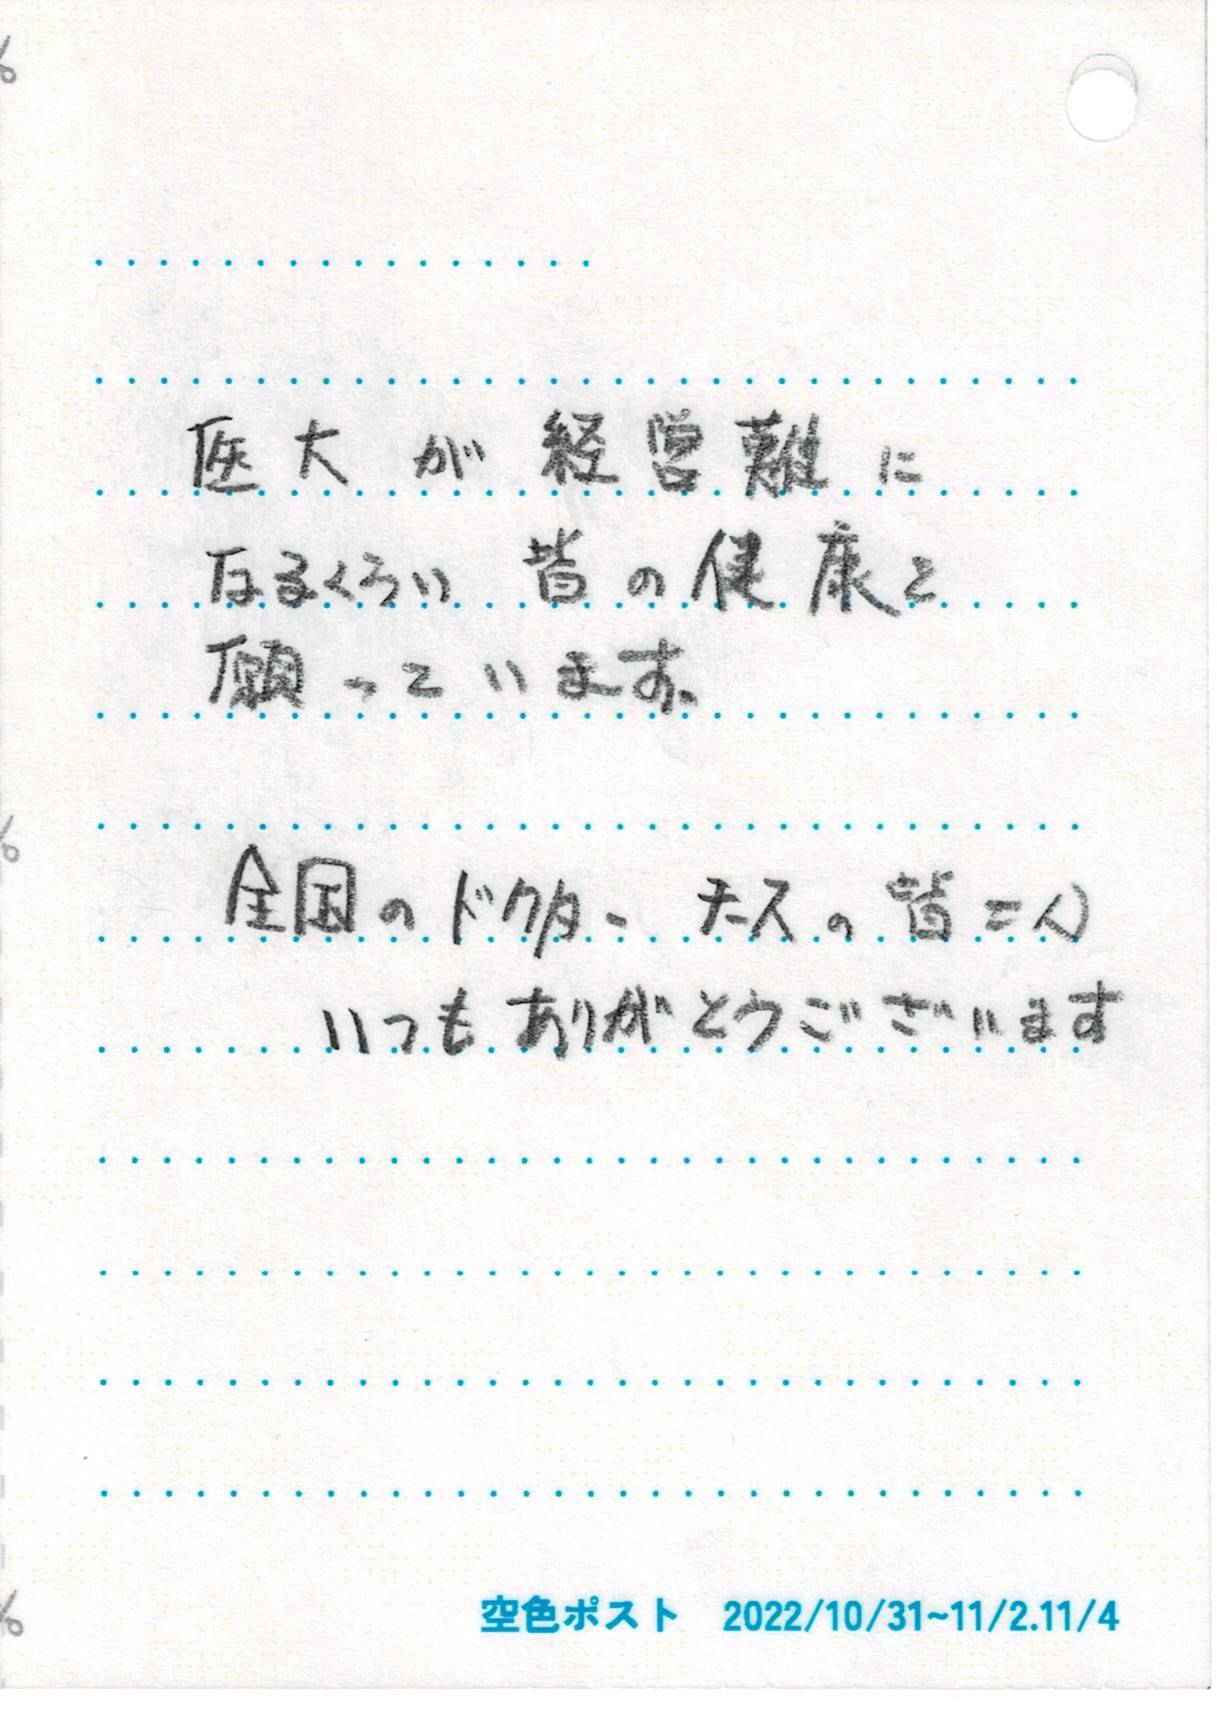 医大が経営難に
なるくらい皆の健康を
願っています。
全国のドクター ナースの皆さん
いつもありがとうございます
空色ポスト 2022/10/31~11/2.11/4